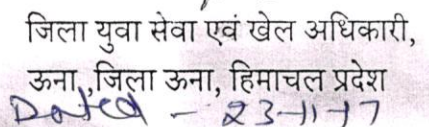 जिला युवा सेवा एवं खेल अधिकारी,
ऊना,,जिला ऊना, हिमाचल प्रदेश
Dated - 23-11-17